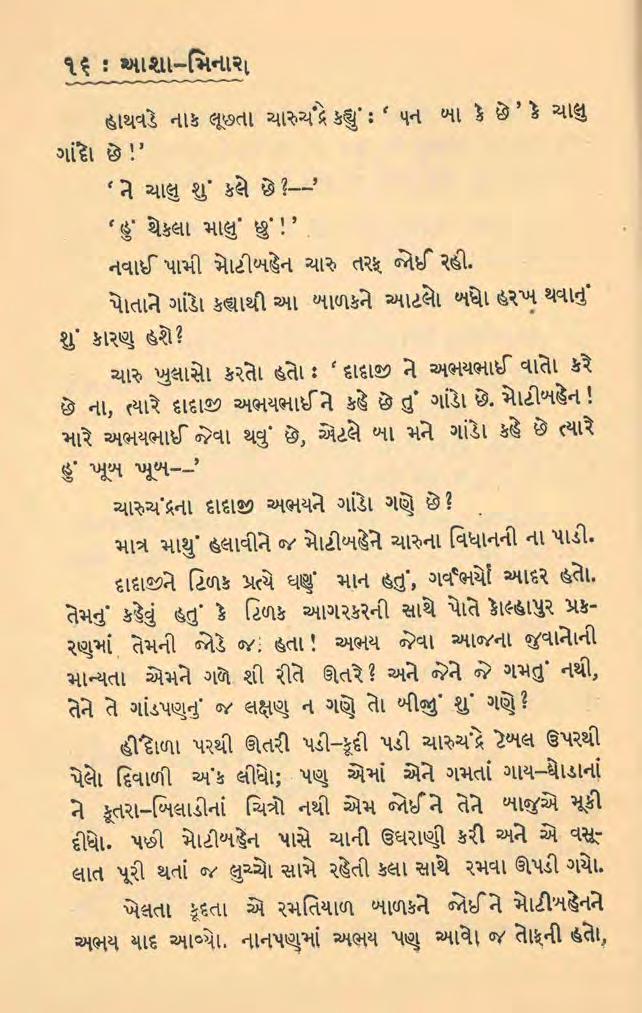 ૧૬ : આશા–મિનારા
હાથવડે નાક લૂછતા ચારુચંદ્રે કહ્યું : ‘ પન બા કે છે’ કે ચાલુ
ગાંદો છે !’
‘ ને ચાલુ શું કલે છે ?––’
‘ હું થેકલા માલું છું !’
નવાઈ પામી મોટીબહેન ચારુ તરફ જોઈ રહી.
પોતાને ગાંડો કહ્યાથી આ બાળકને આટલો બધો હરખ થવાનું
શું કારણ હશે ?
ચારુ ખુલાસો કરતો હતો : ‘ દાદાજી ને અભયભાઈ વાતો કરે
છે ના, ત્યારે દાદાજી અભયભાઈને કહે છે તું ગાંડો છે. મોટીબહેન !
મારે અભયભાઈ જેવા થવું છે, એટલે બા મને ગાંડો કહે છે ત્યારે
હું ખૂબ ખૂબ––’
ચારુચંદ્રના દાદાજી અભયને ગાંડો ગણે છે ?
માત્ર માથું હલાવીને જ મોટીબહેને ચારુના વિધાનની ના પાડી.
દાદાજીને ટિળક પ્રત્યે ઘણું માન હતું, ગર્વભર્યો આદર હતો.
તેમનું કહેવું હતું કે ટિળક આગરકરની સાથે પોતે કોલ્હાપુર પ્રક-
રણમાં તેમની જોડે જ હતા ! અભય જેવા આજના જુવાનોની
માન્યતા એમને ગળે શી રીતે ઊતરે ? અને જેને જે ગમતું નથી,
તેને તે ગાંડપણનું જ લક્ષણ ન ગણે તો બીજું શું ગણે ?
હીંદોળા પરથી ઊતરી પડી–કૂદી પડી ચારુચંદ્રે ટેબલ ઉપરથી
પેલો દિવાળી અંક લીધો; પણ એમાં એને ગમતાં ગાય–ઘોડાનાં
ને કૂતરા–બિલાડીનાં ચિત્રો નથી એમ જોઈને તેને બાજુએ મૂકી
દીધો. પછી મોટીબહેન પાસે ચાની ઉઘરાણી કરી અને એ વસૂ-
લાત પૂરી થતાં જ લુચ્ચો સામે રહેતી કલા સાથે રમવા ઊપડી ગયો.
ખેલતા કૂદતા એ રમતિયાળ બાળકને જોઈને મોટીબહેનને
અભય યાદ આવ્યો. નાનપણમાં અભય પણ આવો જ તોફાની હતો,